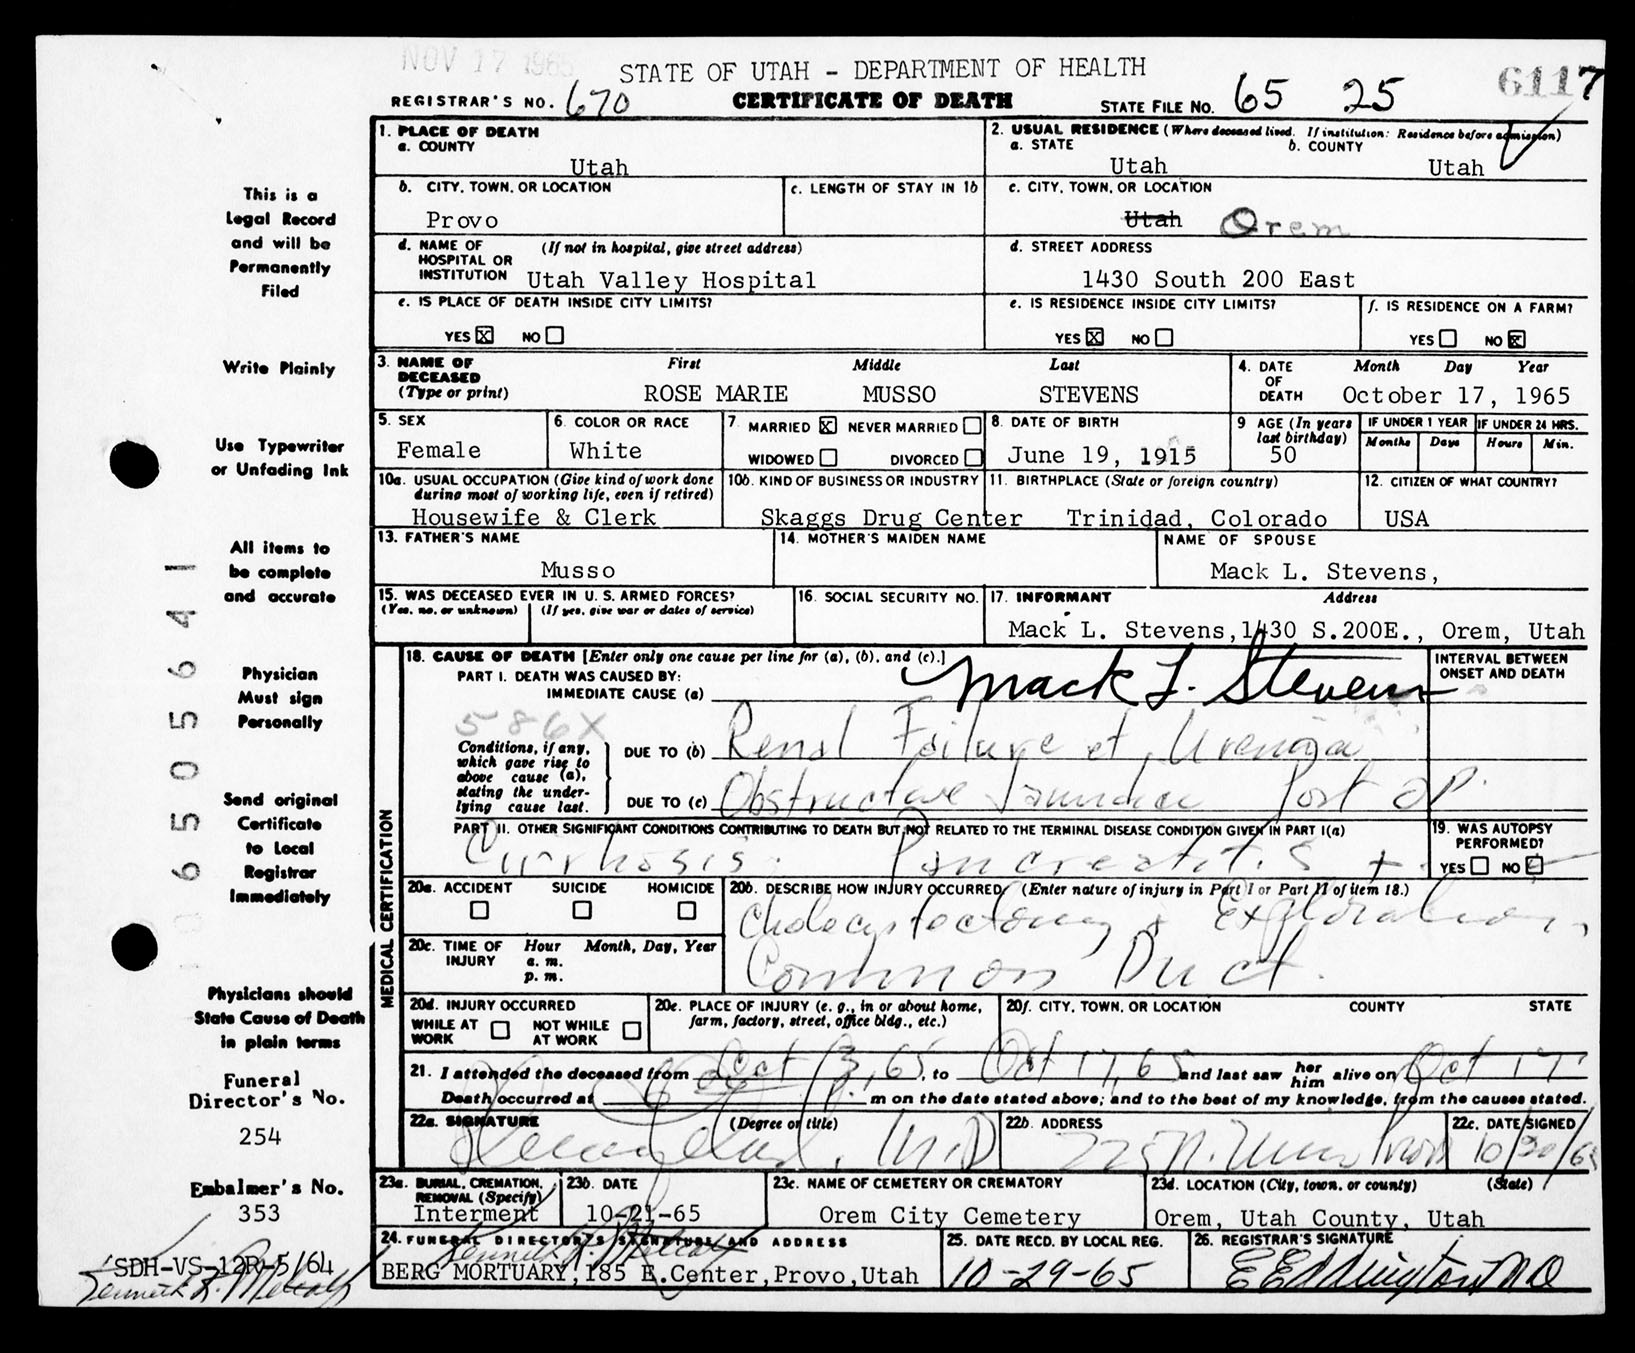 NOV 17 1965
STATE OF UTAH - DEPARTMENT OF HEALTH
6117
REGISTRAR'S NO. 670
CERTIFICATE OF DEATH
STATE FILE NO. 65 25
1. PLACE OF DEATH
a. COUNTY
Utah
2. USUAL RESIDENCE (Where deceased lived. If institution: Residence before admission)
a. STATE
Utah
b. COUNTY
Utah
b. CITY, TOWN, OR LOCATION
Provo
c. LENGTH OF STAY IN 1b
c. CITY, TOWN, OR LOCATION
Utah Orem
d. NAME OF HOSPITAL OR INSTITUTION
(If not in hospital, give street address)
Utah Valley Hospital
d. STREET ADDRESS
1430 South 200 East
e. IS PLACE OF DEATH INSIDE CITY LIMITS?
YES X NO
e. IS RESIDENCE INSIDE CITY LIMITS?
YES X NO
f. IS RESIDENCE ON A FARM?
YES NO X
3. NAME OF DECEASED
(Type or print)
First Middle Last
ROSE MARIE MUSSO STEVENS
4. DATE OF DEATH
Month Day Year
October 17, 1965
5. SEX
Female
6. COLOR OR RACE
White
7. MARRIED X NEVER MARRIED
WIDOWED DIVORCED
8. DATE OF BIRTH
June 19, 1915
9 AGE (In years last birthday)
50
IF UNDER 1 YEAR
Months Days
IF UNDER 24 HRS.
Hours Min.
10a. USUAL OCCUPATION (Give kind of work done during most of working life, even if retired)
Housewife & Clerk
10b. KIND OF BUSINESS OR INDUSTRY
Skaggs Drug Center
11. BIRTHPLACE (State or foreign country)
Trinidad, Colorado
12. CITIZEN OF WHAT COUNTRY?
USA
13. FATHER'S NAME
Musso
14. MOTHER'S MAIDEN NAME
NAME OF SPOUSE
Mack L. Stevens,
15. WAS DECEASED EVER IN U. S. ARMED FORCES?
(Yes, no, or unknown) (If yes, give war or dates of service)
16. SOCIAL SECURITY NO.
17. INFORMANT Address
Mack L. Stevens, 1430 S.200E., Orem, Utah
Mack L. Stevens
MEDICAL CERTIFICATION
18. CAUSE OF DEATH [Enter only one cause per line for (a), (b), and (c).]
INTERVAL BETWEEN ONSET AND DEATH
PART I. DEATH WAS CAUSED BY:
IMMEDIATE CAUSE (a)
586X
Conditions, if any, which gave rise to above cause (a), stating the underlying cause last.
DUE TO (b) Renal Failure et Uremia
DUE TO (c) Obstructive Jaundice Post OP.
PART II. OTHER SIGNIFICANT CONDITIONS CONTRIBUTING TO DEATH BUT NOT RELATED TO THE TERMINAL DISEASE CONDITION GIVEN IN PART I(a)
Cirrhosis. Pancreatitis +
19. WAS AUTOPSY PERFORMED?
YES NO
20a. ACCIDENT SUICIDE HOMICIDE
20b. DESCRIBE HOW INJURY OCCURRED (Enter nature of injury in Part I or Part II of item 18.)
Cholecystectomy & Exploration,
Common Duct.
20c. TIME OF INJURY
Hour Month, Day, Year
a. m.
p. m.
20d. INJURY OCCURRED
WHILE AT WORK NOT WHILE AT WORK
20e. PLACE OF INJURY (e. g., in or about home, farm, factory, street, office bldg., etc.)
20f. CITY, TOWN, OR LOCATION COUNTY STATE
21. I attended the deceased from Oct 13, 65, to Oct 17, 65 and last saw her him alive on Oct 17
Death occurred at 6 P. m on the date stated above; and to the best of my knowledge, from the causes stated.
22a. SIGNATURE (Degree or title)
M.D
22b. ADDRESS
Provo
22c. DATE SIGNED
10/20/65
23a. BURIAL, CREMATION, REMOVAL (Specify)
Interment
23b. DATE
10-21-65
23c. NAME OF CEMETERY OR CREMATORY
Orem City Cemetery
23d. LOCATION (City, town, or county) (State)
Orem, Utah County, Utah
24. FUNERAL DIRECTOR'S SIGNATURE AND ADDRESS
Kenneth L. Metcalf
BERG MORTUARY, 185 E.Center, Provo, Utah
25. DATE RECD. BY LOCAL REG.
10-29-65
26. REGISTRAR'S SIGNATURE
This is a
Legal Record
and will be
Permanently
Filed
Write Plainly
Use Typewriter
or Unfading Ink
All items to
be complete
and accurate
Physician
Must sign
Personally
Send original
Certificate
to Local
Registrar
Immediately
Physicians should
State Cause of Death
in plain terms
Funeral
Director's No.
254
Embalmer's No.
353
SDH-VS-12R-5/64
Kenneth L. Metcalf
6 5 0 5 6 4 1